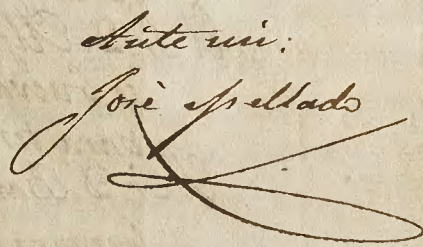 Ante mi:
José Mellado